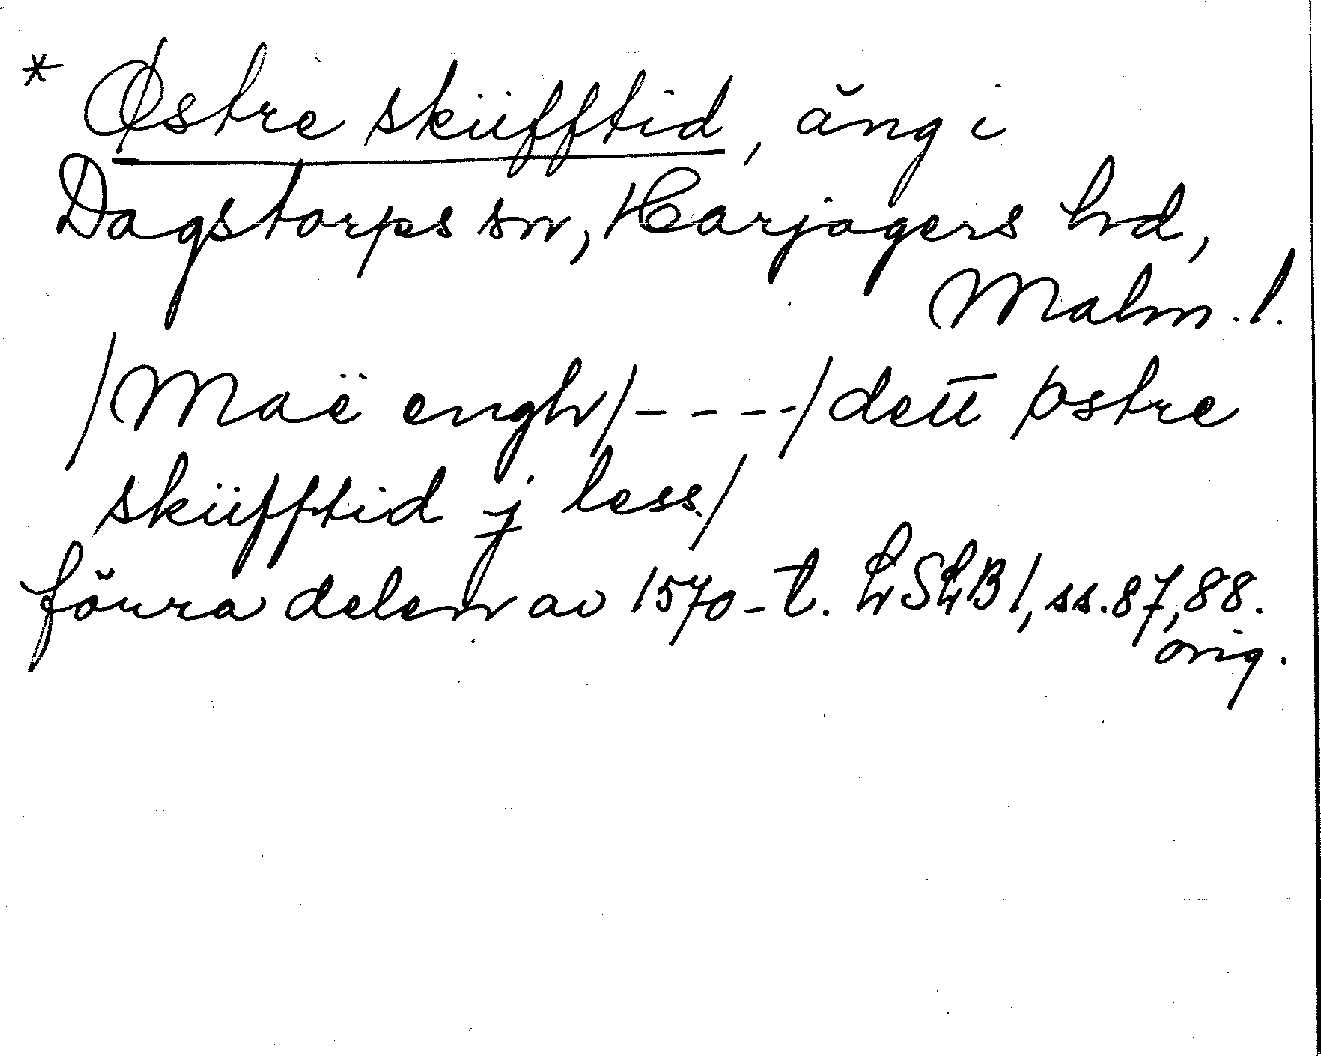 * Østre sküfftid, äng i
Dagstorps sn, Harjagers hd,
Malm. l.
/Maë engh/----/dett østre
sküfftid j less/
förra delen av 1570-t. LSLB 1, ss. 87, 88.
orig.